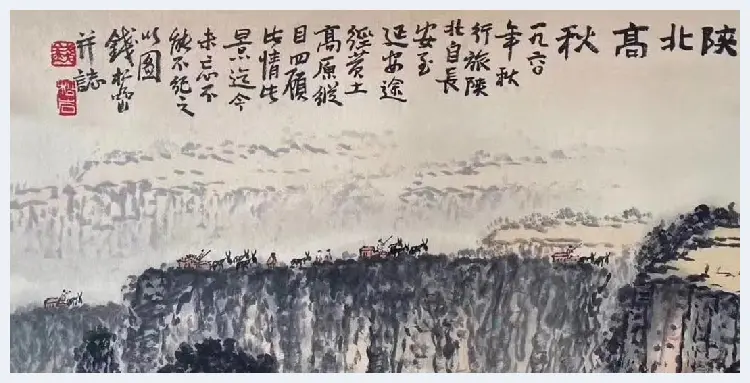 陕北高秋
一九六〇
年秋
行旅陕
北自長
安至
延安途
經黄土
高原縱
目四顾
此情此
景迄今
未忘不
能不纪之
以图
錢松喦
并誌